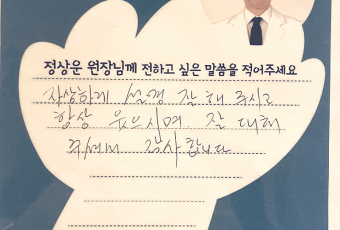 정상운 원장님께 전하고 싶은 말씀을 적어주세요
자상하게 설명 잘 해 주시고
항상 웃으시며 잘 대해
주셔서 감사합니다